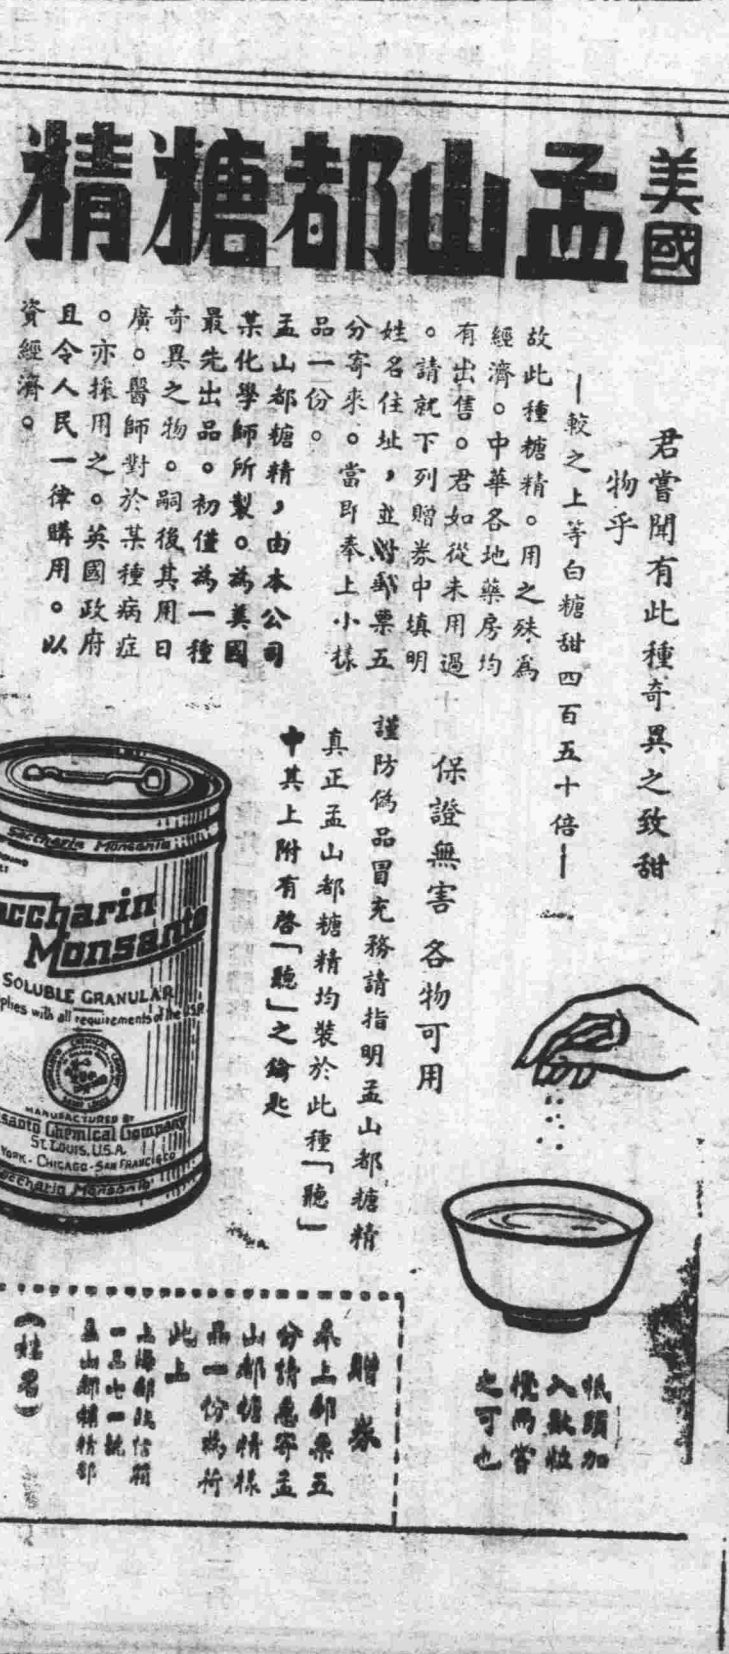 美國
孟山都糖精
君嘗聞有此種奇異之致甜
物乎
—較之上等白糖甜四百五十倍—
故此種糖精。用之殊為
經濟。中華各地藥房均
有出售。君如從未用過
。請就下列贈券中填明
姓名住址,並附郵票五
分寄來。當即奉上小樣
品一份。
孟山都糖精,由本公司
某化學師所製。為美國
最先出品。初僅為一種
奇異之物。嗣後其用日
廣。醫師對於某種病症
。亦採用之。英國政府
且令人民一律購用。以
資經濟。
保證無害 各物可用
謹防偽品冒充務請指明孟山都糖精
真正孟山都糖精均裝於此種「聽」
中其上附有啓「聽」之鑰匙
Saccharin Monsanto
ccharin
Monsanto
SOLUBLE GRANULAR
plies with all requirements of the U.S.P.
MANUFACTURED BY
santo Chemical Company
ST. LOUIS, U.S.A.
YORK - CHICAGO - SAN FRANCISCO
Saccharin Monsanto
祇須加
入數粒
攪而嘗
之可也
贈券
奉上郵票五
分請惠寄孟
山都糖精樣
品一份為荷
此上
上海郵政信箱
孟山都糖精部
(姓名)